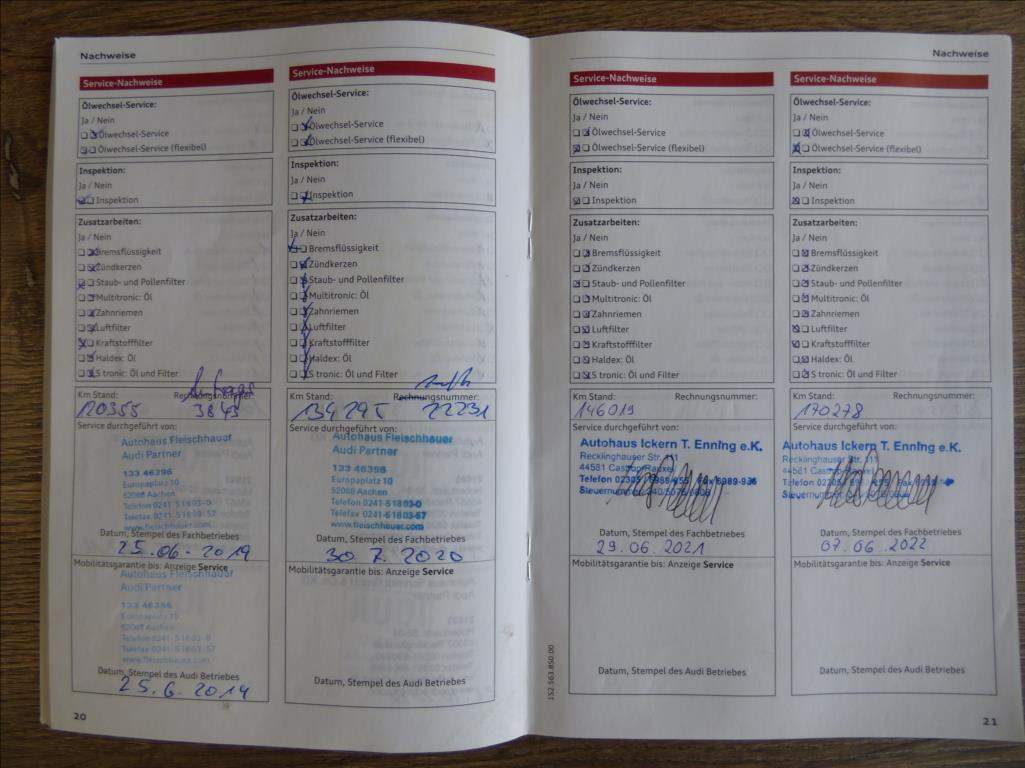 Nachweise
Service-Nachweise
Ölwechsel-Service:
Ja / Nein
Ölwechsel-Service
Ölwechsel-Service (flexibel)
Inspektion:
Ja / Nein
Inspektion
Zusatzarbeiten:
Ja / Nein
Bremsflüssigkeit
Zündkerzen
Staub- und Pollenfilter
Multitronic: Öl
Zahnriemen
Luftfilter
Kraftstofffilter
Haldex: Öl
S tronic: Öl und Filter
Km Stand: Rechnungsnummer:
120355 3843
Service durchgeführt von:
Autohaus Fleischhauer
Audi Partner
133 46396
Europaplatz 10
52068 Aachen
Telefon 0241-51803-0
Telefax 0241-51803-57
www.fleischhauer.com
Datum, Stempel des Fachbetriebes
25.06.2019
Mobilitätsgarantie bis: Anzeige Service
Autohaus Fleischhauer
Audi Partner
133 46396
Europaplatz 10
52068 Aachen
Telefon 0241-51803-0
Telefax 0241-51803-57
www.fleischhauer.com
Datum, Stempel des Audi Betriebes
25.6.2019
20
Service-Nachweise
Ölwechsel-Service:
Ja / Nein
Ölwechsel-Service
Ölwechsel-Service (flexibel)
Inspektion:
Ja / Nein
Inspektion
Zusatzarbeiten:
Ja / Nein
Bremsflüssigkeit
Zündkerzen
Staub- und Pollenfilter
Multitronic: Öl
Zahnriemen
Luftfilter
Kraftstofffilter
Haldex: Öl
S tronic: Öl und Filter
Km Stand: Rechnungsnummer:
22231
Service durchgeführt von:
Autohaus Fleischhauer
Audi Partner
133 46396
Europaplatz 10
52068 Aachen
Telefon 0241-51803-0
Telefax 0241-51803-57
www.fleischhauer.com
Datum, Stempel des Fachbetriebes
30.7.2020
Mobilitätsgarantie bis: Anzeige Service
Datum, Stempel des Audi Betriebes
Nachweise
Service-Nachweise
Ölwechsel-Service:
Ja / Nein
Ölwechsel-Service
Ölwechsel-Service (flexibel)
Inspektion:
Ja / Nein
Inspektion
Zusatzarbeiten:
Ja / Nein
Bremsflüssigkeit
Zündkerzen
Staub- und Pollenfilter
Multitronic: Öl
Zahnriemen
Luftfilter
Kraftstofffilter
Haldex: Öl
S tronic: Öl und Filter
Km Stand: Rechnungsnummer:
146019
Service durchgeführt von:
Autohaus Ickern T. Enning e.K.
Recklinghauser Str. 311
44581 Castrop-Rauxel
Telefon 02305
Steuernummer
Datum, Stempel des Fachbetriebes
29.06.2021
Mobilitätsgarantie bis: Anzeige Service
Datum, Stempel des Audi Betriebes
152.563.850.00
Service-Nachweise
Ölwechsel-Service:
Ja / Nein
Ölwechsel-Service
Ölwechsel-Service (flexibel)
Inspektion:
Ja / Nein
Inspektion
Zusatzarbeiten:
Ja / Nein
Bremsflüssigkeit
Zündkerzen
Staub- und Pollenfilter
Multitronic: Öl
Zahnriemen
Luftfilter
Kraftstofffilter
Haldex: Öl
S tronic: Öl und Filter
Km Stand: Rechnungsnummer:
170278
Service durchgeführt von:
Autohaus Ickern T. Enning e.K.
Recklinghauser Str. 311
44581
Telefon
Datum, Stempel des Fachbetriebes
07.06.2022
Mobilitätsgarantie bis: Anzeige Service
Datum, Stempel des Audi Betriebes
21